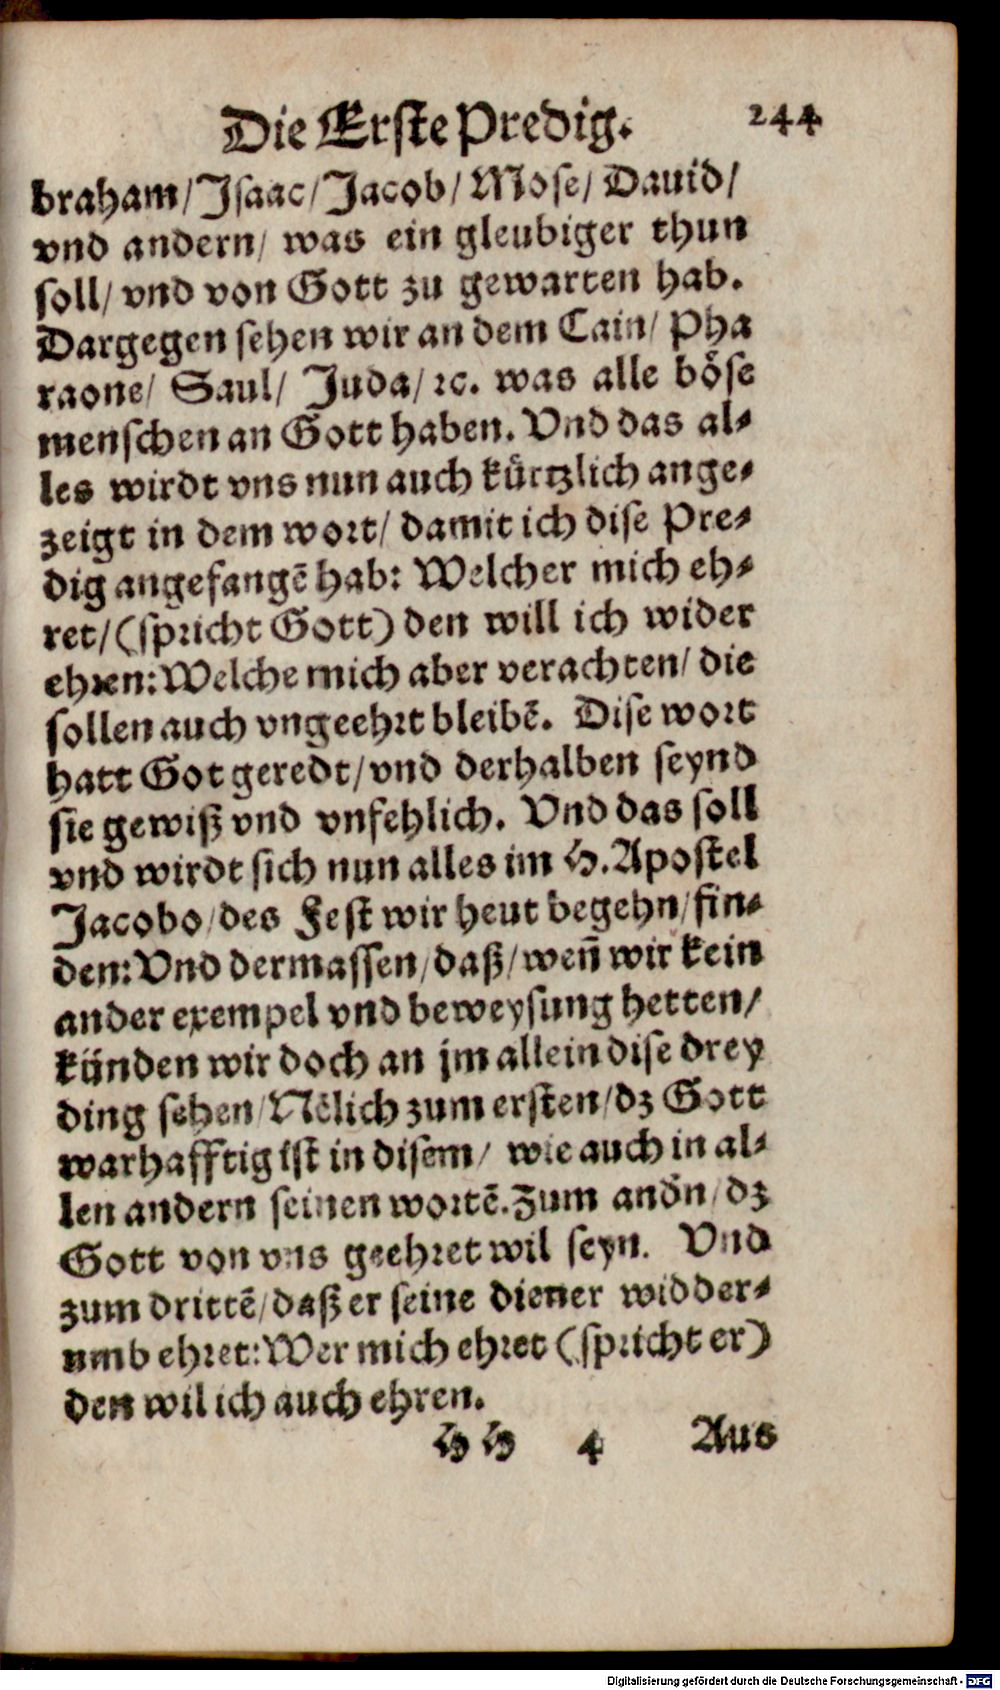 Die Erste Predig. 244
braham/ Isaac/ Jacob/ Mose/ Dauid/
vnd andern/ was ein gleubiger thun
soll/ vnd von Gott zu gewarten hab.
Dargegen sehen wir an dem Cain/ Pha
raone/ Saul/ Juda/ ꝛc. was alle böse
menschen an Gott haben. Vnd das al⸗
les wirdt vns nun auch kürtzlich ange⸗
zeigt in dem wort/ damit ich dise Pre⸗
dig angefangē hab: Welcher mich eh⸗
ret/ (spricht Gott) den will ich wider
ehren: Welche mich aber verachten/ die
sollen auch vngeehrt bleibē. Dise wort
hatt Got geredt/ vnd derhalben seynd
sie gewiß vnd vnfehlich. Vnd das soll
vnd wirdt sich nun alles im H. Apostel
Jacobo/ des Fest wir heut begehn/ fin⸗
den: Vnd dermassen/ daß/ wen̄ wir kein
ander exempel vnd beweysung hetten/
künden wir doch an jm allein dise drey
ding sehen/ Nēlich zum ersten/ dz Gott
warhafftig ist in disem/ wie auch in al⸗
len andern seinen wortē. Zum andn̄/ dz
Gott von vns geehret wil seyn. Vnd
zum drittē/ daß er seine diener widder⸗
umb ehret: Wer mich ehret (spricht er)
den wil ich auch ehren.
HH 4 Aus
Digitalisierung gefördert durch die Deutsche Forschungsgemeinschaft - DFG